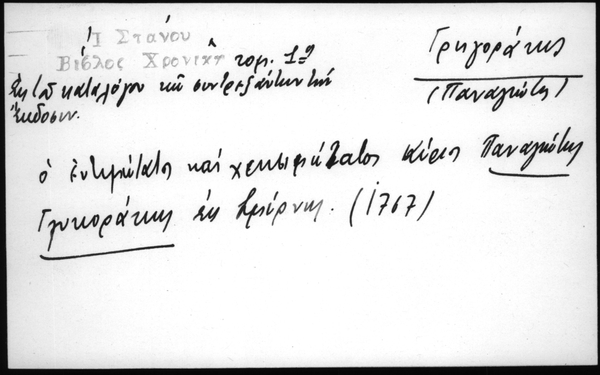 Ἰ Στάνου
Βίβλος Χρονικὴ τομ. 1ος
Ἐκ τοῦ καταλόγου τῶν συνδρ. τὴν
ἔκδοσιν.
Γρηγοράκης
(Παναγιώτης)
ὁ ἐντιμώτατος καὶ χρησιμώτατος κύριος Παναγιώτης
Γρηγοράκης ἐκ Σμύρνης. (1767)